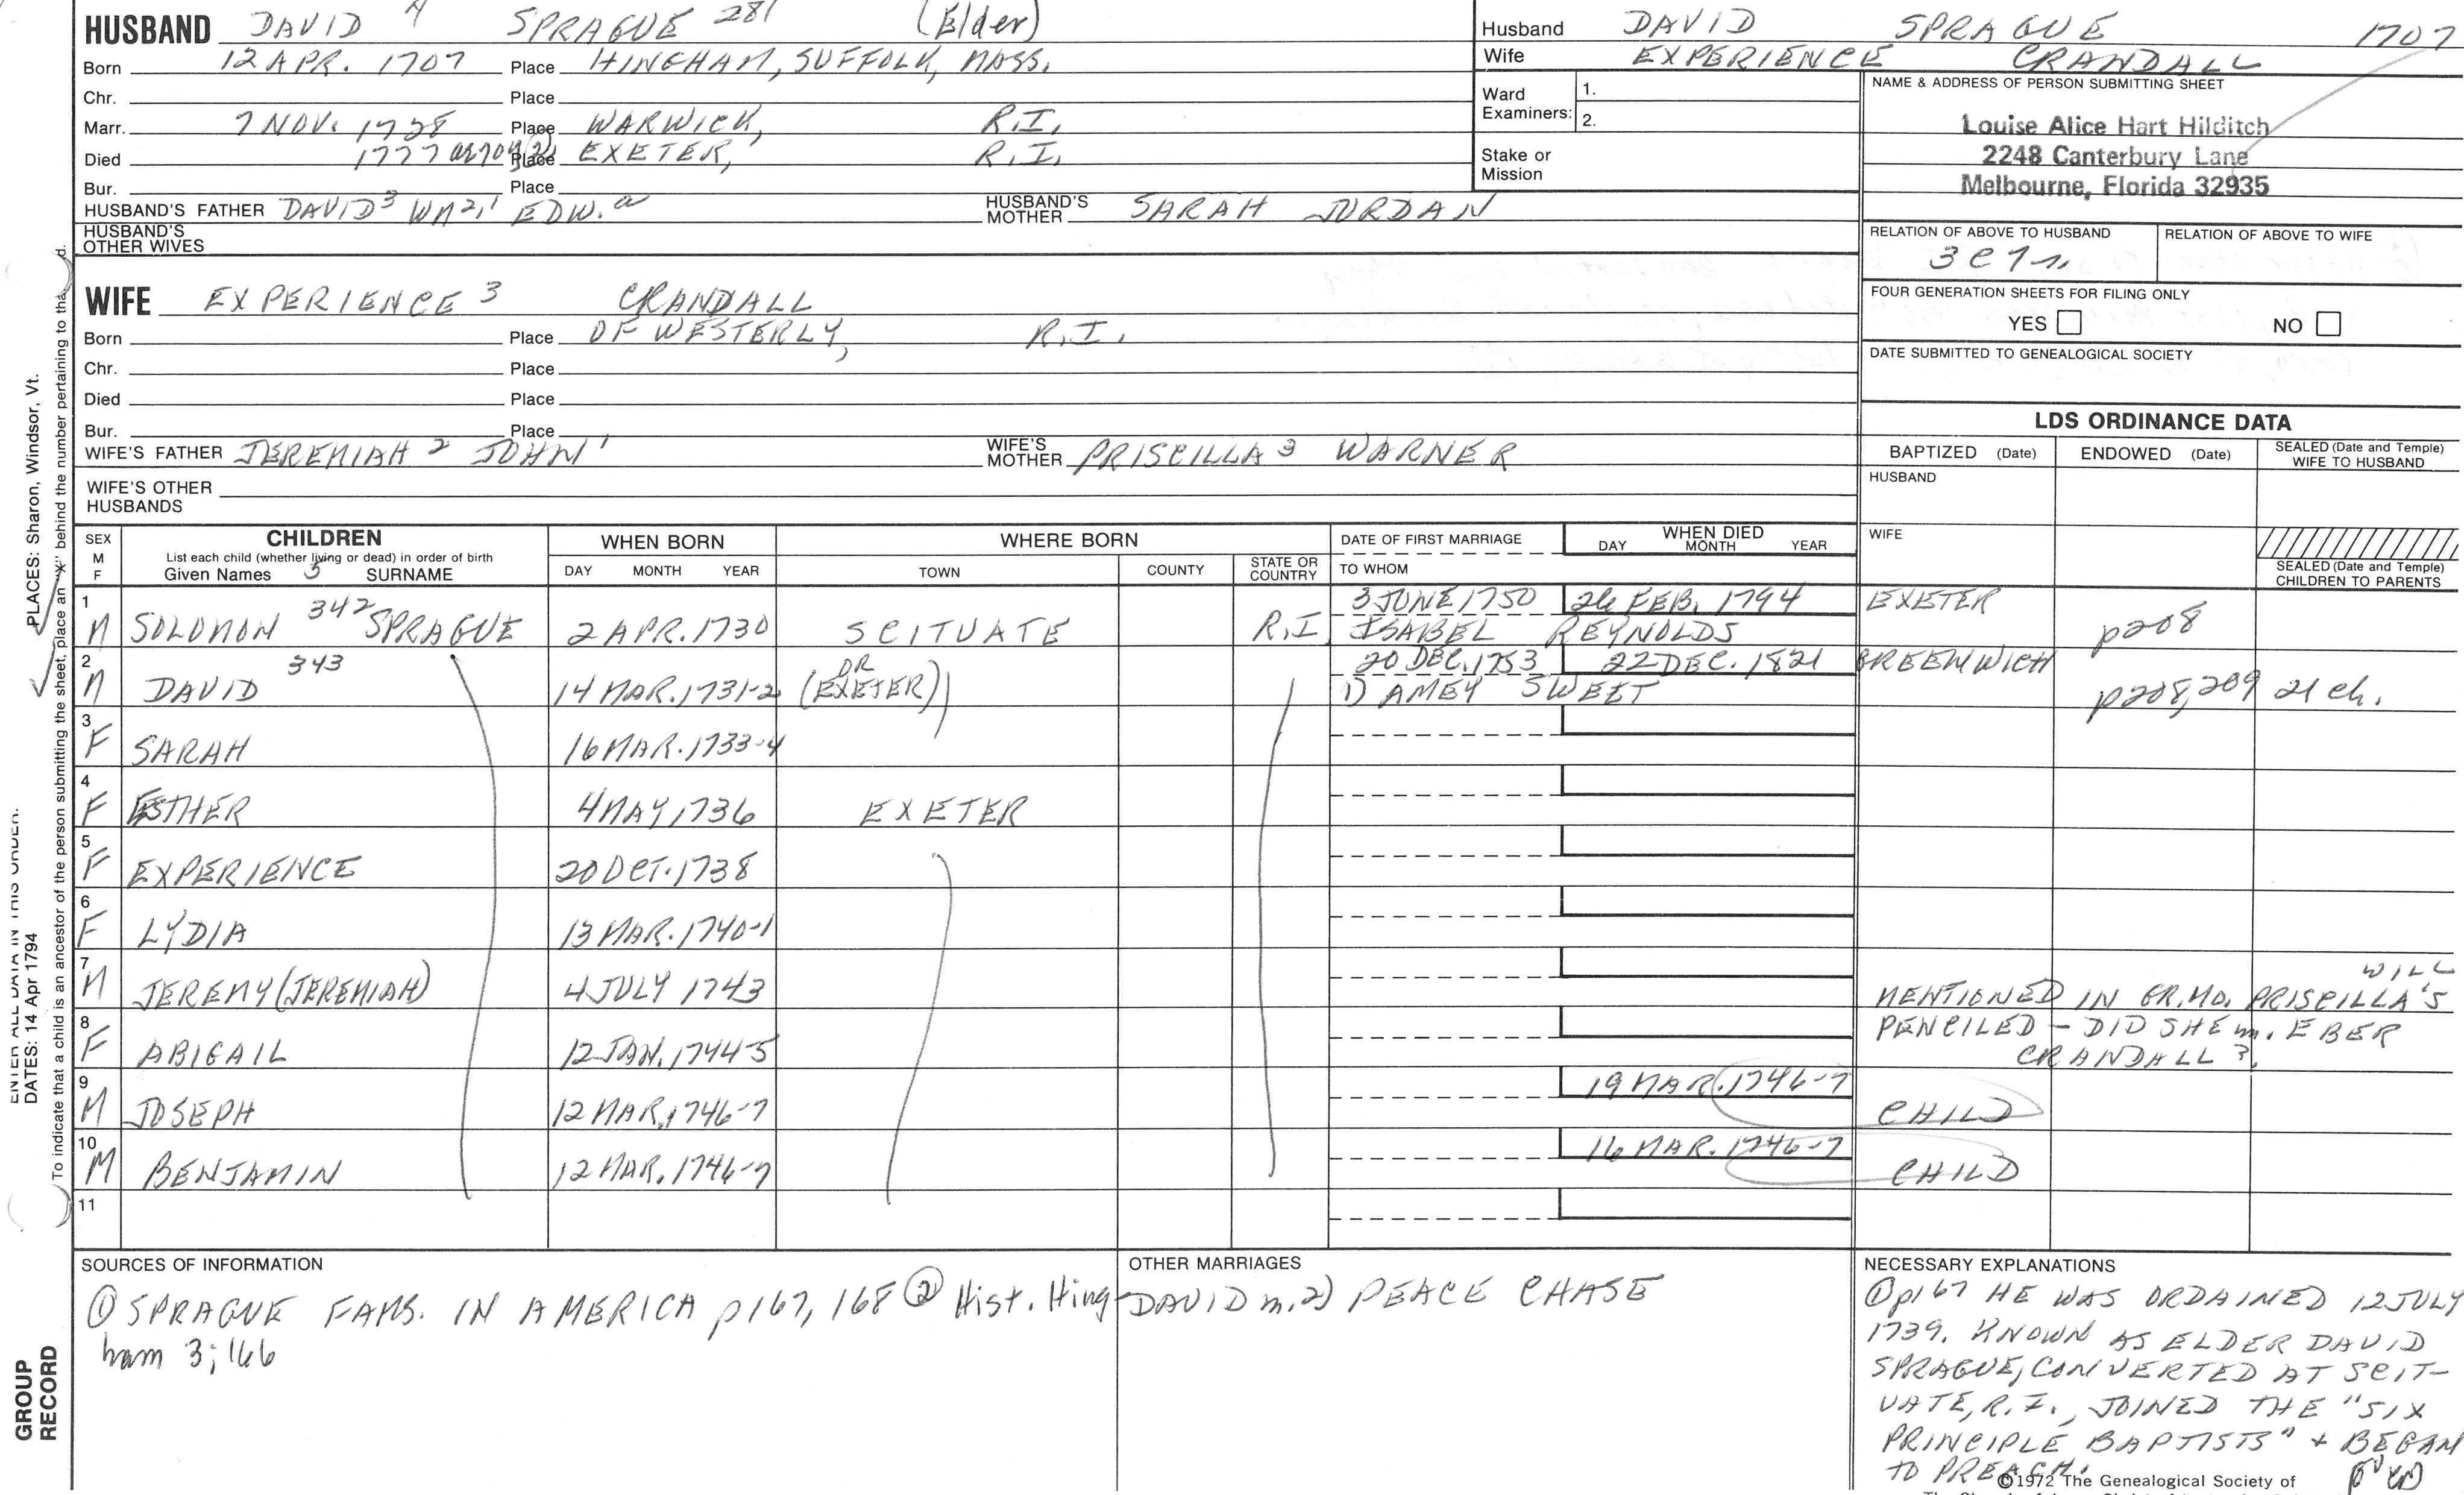 HUSBAND DAVID 4 SPRAGUE 281 (Elder)
Born 12 APR. 1707 Place HINGHAM, SUFFOLK, MASS.
Chr. Place
Marr. 7 NOV. 1728 Place WARWICK, R.I.
Died 1777 Place EXETER, R.I.
Bur. Place
HUSBAND'S FATHER DAVID3 Wm2,1 EDW.a HUSBAND'S MOTHER SARAH JORDAN
HUSBAND'S OTHER WIVES
WIFE EXPERIENCE 3 CRANDALL
Born Place OF WESTERLY, R.I.
Chr. Place
Died Place
Bur. Place
WIFE'S FATHER JEREMIAH 2 JOHN 1 WIFE'S MOTHER PRISCILLA 3 WARNER
WIFE'S OTHER HUSBANDS
Husband DAVID SPRAGUE 1707
Wife EXPERIENCE CRANDALL
Ward Examiners: 1.
2.
Stake or Mission
NAME & ADDRESS OF PERSON SUBMITTING SHEET
Louise Alice Hart Hilditch
2248 Canterbury Lane
Melbourne, Florida 32935
RELATION OF ABOVE TO HUSBAND RELATION OF ABOVE TO WIFE
FOUR GENERATION SHEETS FOR FILING ONLY
YES NO
DATE SUBMITTED TO GENEALOGICAL SOCIETY
LDS ORDINANCE DATA
BAPTIZED (Date) ENDOWED (Date) SEALED (Date and Temple) WIFE TO HUSBAND
HUSBAND
WIFE
SEALED (Date and Temple) CHILDREN TO PARENTS
SEX M F CHILDREN WHEN BORN WHERE BORN DATE OF FIRST MARRIAGE WHEN DIED
List each child (whether living or dead) in order of birth
Given Names 5 SURNAME DAY MONTH YEAR TOWN COUNTY STATE OR COUNTRY TO WHOM DAY MONTH YEAR
1 3 JUNE 1750 26 FEB. 1794 EXETER
M SOLOMON 342 SPRAGUE 2 APR. 1730 SCITUATE R.I. ISABEL REYNOLDS p208
2 343 OR 20 DEC. 1753 22 DEC. 1821 GREENWICH
M DAVID 14 MAR. 1731-2 (EXETER) 1) AMEY SWEET p208,209 21 ch.
3
F SARAH 16 MAR. 1733-4
4
F ESTHER 4 MAY 1736 EXETER
5
F EXPERIENCE 20 OCT. 1738
6
F LYDIA 13 MAR. 1740-1
7 WILL
M JEREMY (JEREMIAH) 4 JULY 1743 MENTIONED IN GR. MO. PRISCILLA'S
8 PENCILED - DID SHE m. EBER
F ABIGAIL 12 JAN. 1744-5 CRANDALL ?
9 19 MAR. 1746-7
M JOSEPH 12 MAR. 1746-7 CHILD
10 16 MAR. 1746-7
M BENJAMIN 12 MAR. 1746-7 CHILD
11
SOURCES OF INFORMATION
① SPRAGUE FAMS. IN AMERICA p167, 168 ② Hist. Hing-
ham 3; 166
OTHER MARRIAGES
DAVID m. 2) PEACE CHASE
NECESSARY EXPLANATIONS
① p167 HE WAS ORDAINED 12 JULY
1739. KNOWN AS ELDER DAVID
SPRAGUE, CONVERTED AT SCIT-
UATE, R.I., JOINED THE "SIX
PRINCIPLE BAPTISTS" + BEGAN
TO PREACH.
©1972 The Genealogical Society of
PLACES: Sharon, Windsor, Vt.
ENTER ALL DATA IN THIS ORDER:
DATES: 14 Apr 1794
To indicate that a child is an ancestor of the person submitting the sheet, place an "X" behind the number pertaining to that
GROUP
RECORD